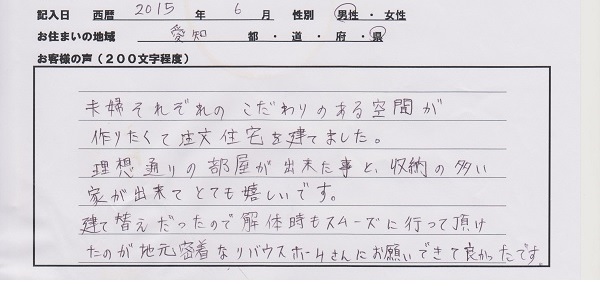 記入日 西暦 2015 年 6 月 性別 男性・女性
お住まいの地域 愛知 都・道・府・県
お客様の声（200文字程度）
夫婦それぞれの こだわりのある空間が
作りたくて注文住宅を建てました。
理想通りの部屋が出来た事と、収納の多い
家が出来て とても嬉しいです。
建て替えだったので解体時もスムーズに行って頂け
たのが地元密着なリバウスホームさんにお願いできて良かったです。